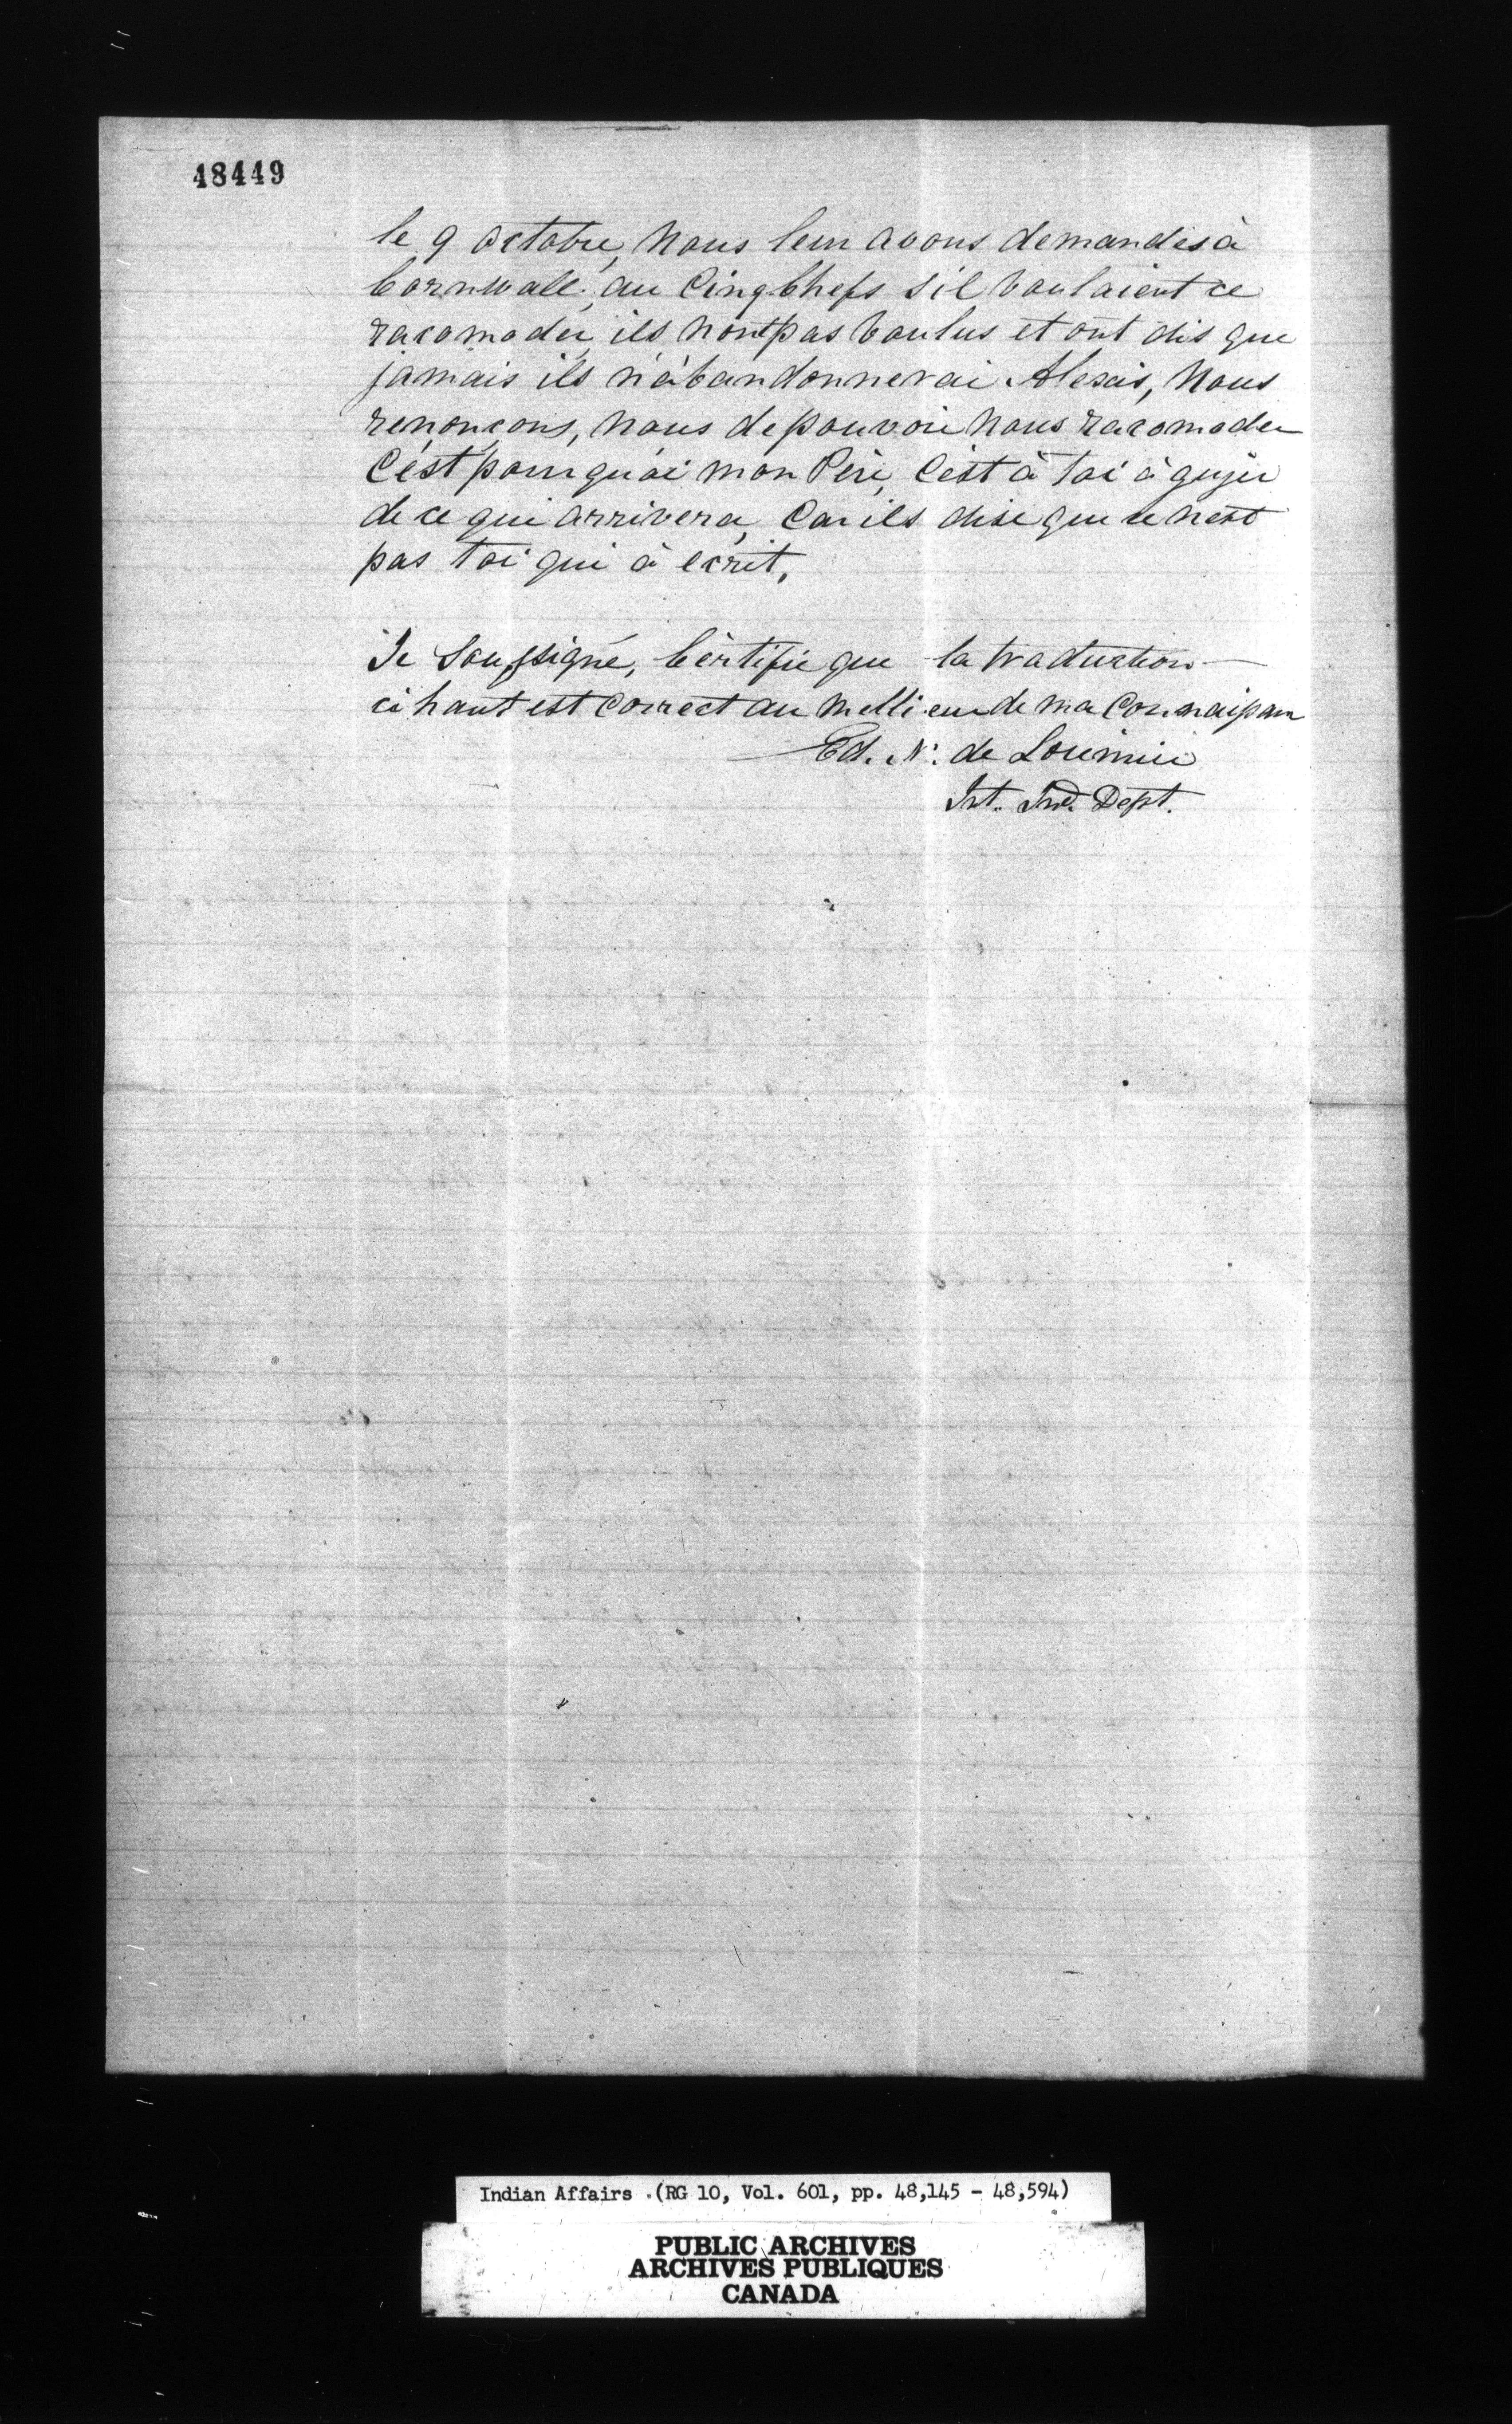 48449
le 9 octobre, Nous leur avons demandés à
Cornwall, au Cinq Chefs s'il voulaient ce
racomoder, ils n'ont pas voulus et ont dis que
jamais ils n'abandonnerai Alexis, Nous
renonçons, nous de pouvoir nous racomoder
C'est pourquoi mon Père, C'est à toi à jujer
de ce qui arrivera, Car ils dise que ce n'est
pas toi qui à ecrit,
Je Soussigné, Certifie que la traduction
ci haut est correct au mellieur de ma Connaissan
Ed. N. de Lorimier
Int. Ind. Dept.
Indian Affairs (RG 10, Vol. 601, pp. 48,145 - 48,594)
PUBLIC ARCHIVES
ARCHIVES PUBLIQUES
CANADA